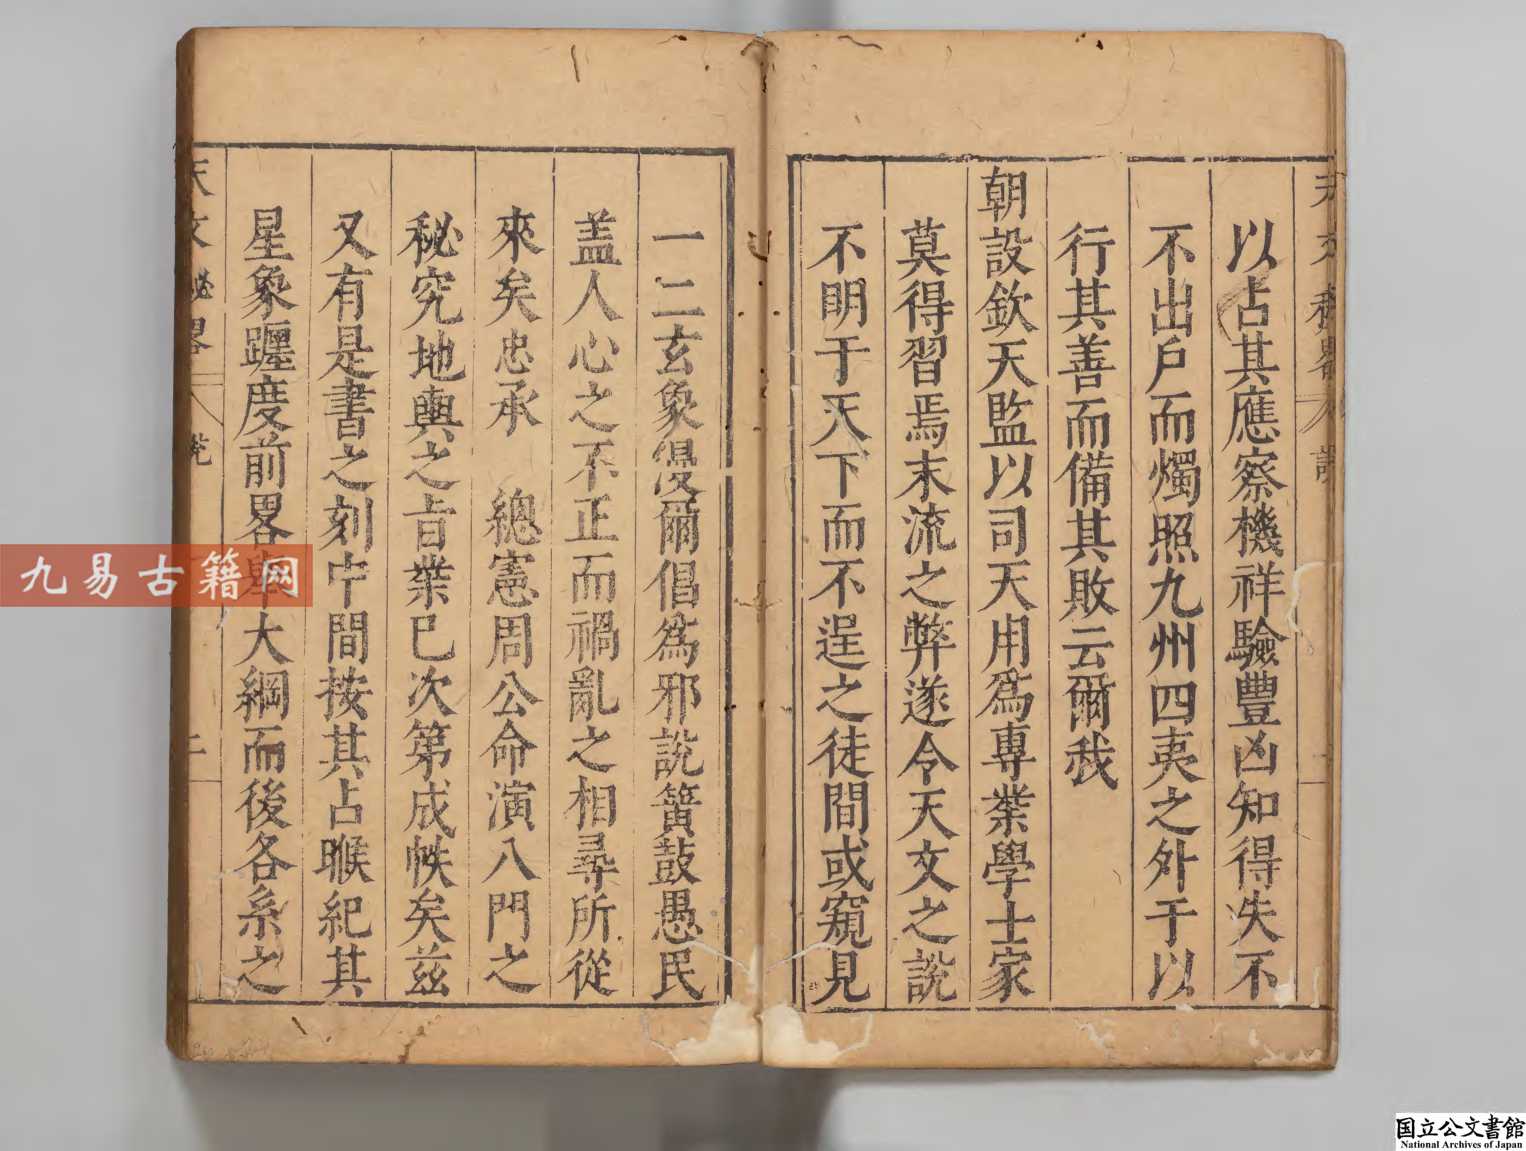 以占其應察機祥驗豐凶知得失不
不出戶而燭照九州四夷之外干以
行其善而備其敗云爾我
朝設欽天監以司天用爲專業學士家
莫得習焉末流之弊遂令天文之說
不明于天下而不逞之徒間或窺見
一二玄象漫爾倡爲邪說簧鼓愚民
盖人心之不正而禍亂之相尋所從
來矣忠承 總憲周公命演八門之
秘究地輿之旨業已次第成帙矣茲
又有是書之刻中間按其占睺紀其
星象躔度前畧舉大綱而後各系之
天文秘畧
二
九易古籍网
国立公文書館
National Archives of Japan